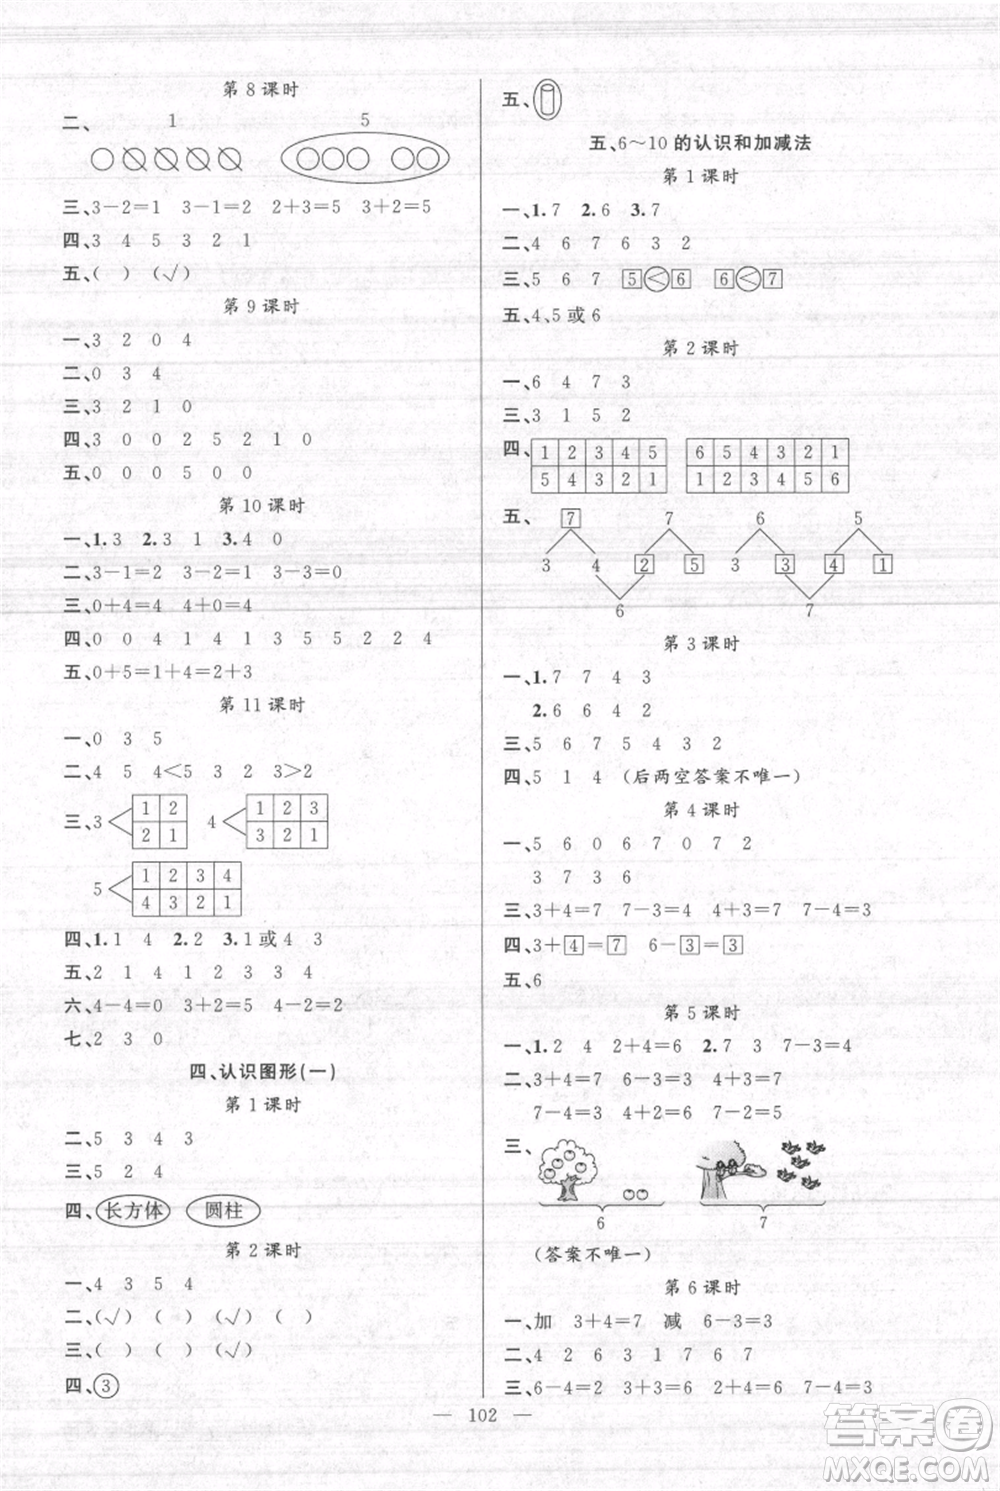 第8课时
二、 1 5
三、3－2＝1 3－1＝2 2＋3＝5 3＋2＝5
四、3 4 5 3 2 1
五、( ) (√)
第9课时
一、3 2 0 4
二、0 3 4
三、3 2 1 0
四、3 0 0 2 5 2 1 0
五、0 0 5 0 0
第10课时
一、1.3 2.3 1 3.4 0
二、3－1＝2 3－3＝0
三、0＋4＝4 4＋0＝4
四、0 0 4 1 4 1 3 5 5 2 2 4
五、0＋5＝1＋4＝2＋3
第11课时
一、0 3 5
二、4 5 4＜5 3 2 3＞2
三、3 1 2 4 1 2 3
2 1 3 2 1
5 1 2 3 4
4 3 2 1
四、1.1 4 2.2 3.1或4 3
五、2 1 4 1 2 3 4
六、4－4＝0 3＋2＝5 4－2＝2
七、2 3 0
四、认识图形(一)
第1课时
二、5 3 4 3
三、5 2 4
四、长方体 圆柱
第2课时
一、4 3 5 4
二、(√) ( ) (√) ( ) ( )
三、( ) ( ) (√) ( )
四、③
五、
五、6～10的认识和加减法
第1课时
一、1.7 2.6 3.7
二、4 6 7 6 3 2
三、5 6 7 5＜6 6＜7
五、4,5或6
第2课时
一、6 4 7 3
三、3 1 5 2
四、 1 2 3 4 5 6 5 4 3 2 1
5 4 3 2 1 1 2 3 4 5 6
五、 7 7 6 5
3 4 2 5 3 3 4 1
6 7
第3课时
一、1.7 7 4 3
2.6 6 4 2
三、5 6 7 5 4 3 2
四、5 1 4 (后两空答案不唯一)
第4课时
一、5 6 0 6 7 0 7 2
3 7 3 6
三、3＋4＝7 7－6＝1 4＋3＝7
四、3＋4＝7 6－3＝3
五、6
第5课时
一、1.2 4 2＋4＝6 2.7 3 7－3＝4
二、3＋4＝7 6－5＝1 6－4＝2
7－4＝3 4＋2＝6 2＋5＝7
三、
6 7
(答案不唯一)
第6课时
一、加 3＋4＝7 减 6－3＝3
二、4 7 6 3 1 7 6 7
三、6－4＝2 3＋3＝6 7－4＝3
— 102 —
答案圈
MXQE.COM